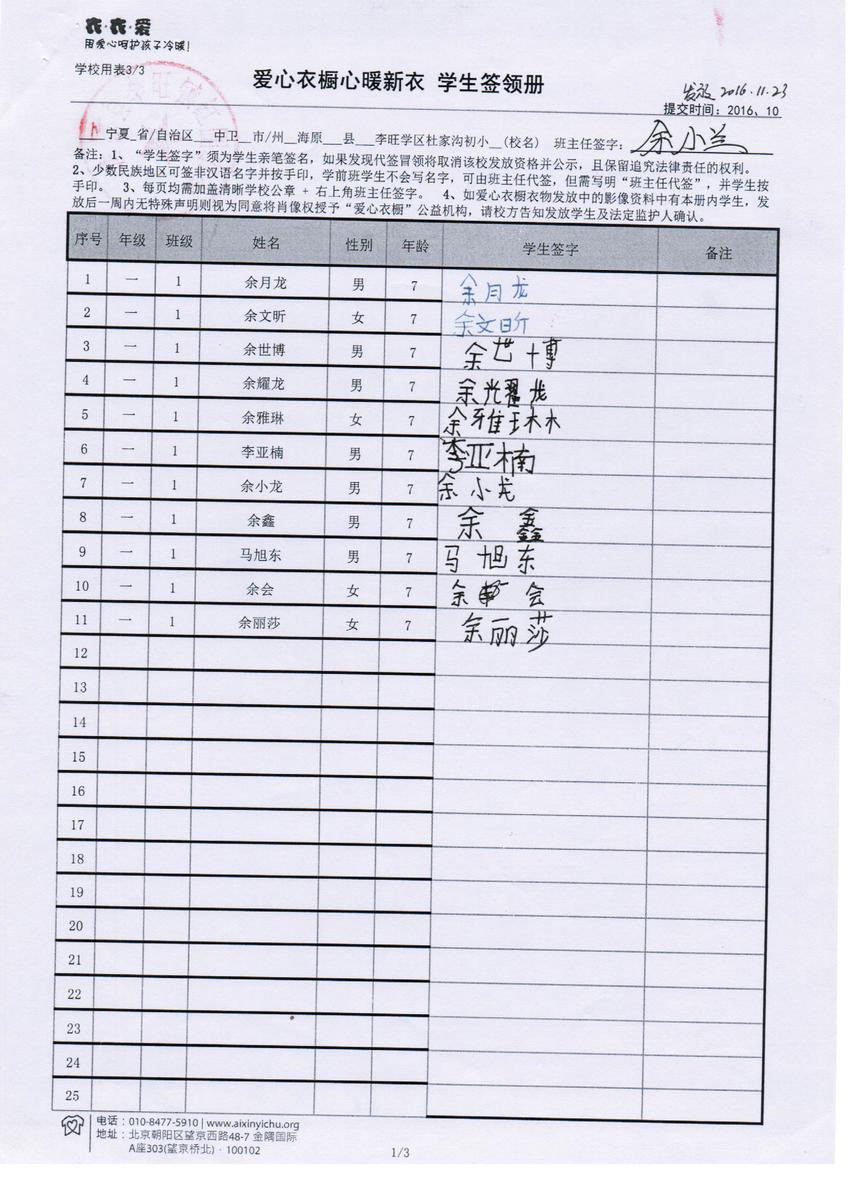 衣·衣·爱
用爱心呵护孩子冷暖!
学校用表3/3
爱心衣橱心暖新衣 学生签领册
发放 2016.11.23
提交时间: 2016、10
宁夏_省/自治区___中卫__市/州__海原___县___李旺学区杜家沟初小__(校名) 班主任签字: 余小兰
备注: 1、“学生签字”须为学生亲笔签名, 如果发现代签冒领将取消该校发放资格并公示, 且保留追究法律责任的权利。
2、少数民族地区可签非汉语名字并按手印, 学前班学生不会写名字, 可由班主任代签, 但需写明“班主任代签”, 并学生按
手印。 3、每页均需加盖清晰学校公章 + 右上角班主任签字。 4、如爱心衣橱衣物发放中的影像资料中有本册内学生, 发
放后一周内无特殊声明则视为同意将肖像权授予“爱心衣橱”公益机构, 请校方告知发放学生及法定监护人确认。
序号 年级 班级 姓名 性别 年龄 学生签字 备注
1 一 1 余月龙 男 7 余月龙
2 一 1 余文昕 女 7 余文昕
3 一 1 余世博 男 7 余世博
4 一 1 余耀龙 男 7 余耀龙
5 一 1 余雅琳 女 7 余雅琳
6 一 1 李亚楠 男 7 李亚楠
7 一 1 余小龙 男 7 余小龙
8 一 1 余鑫 男 7 余鑫
9 一 1 马旭东 男 7 马旭东
10 一 1 余会 女 7 余会
11 一 1 余丽莎 女 7 余丽莎
12
13
14
15
16
17
18
19
20
21
22
23
24
25
电话: 010-8477-5910 | www.aixinyichu.org
地址: 北京朝阳区望京西路48-7 金隅国际
A座303(望京桥北) · 100102
1/3